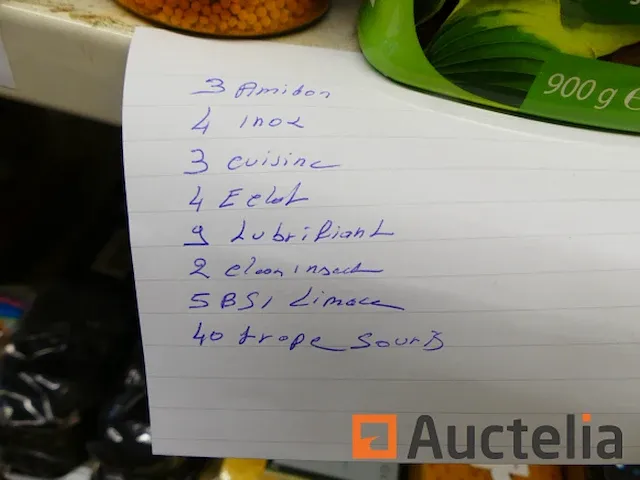 900 g e
3 Amidon
4 inox
3 cuisine
4 Eclat
9 Lubrifiant
2 clean insect
5 BSI Limace
40 trape Souris
Auctelia